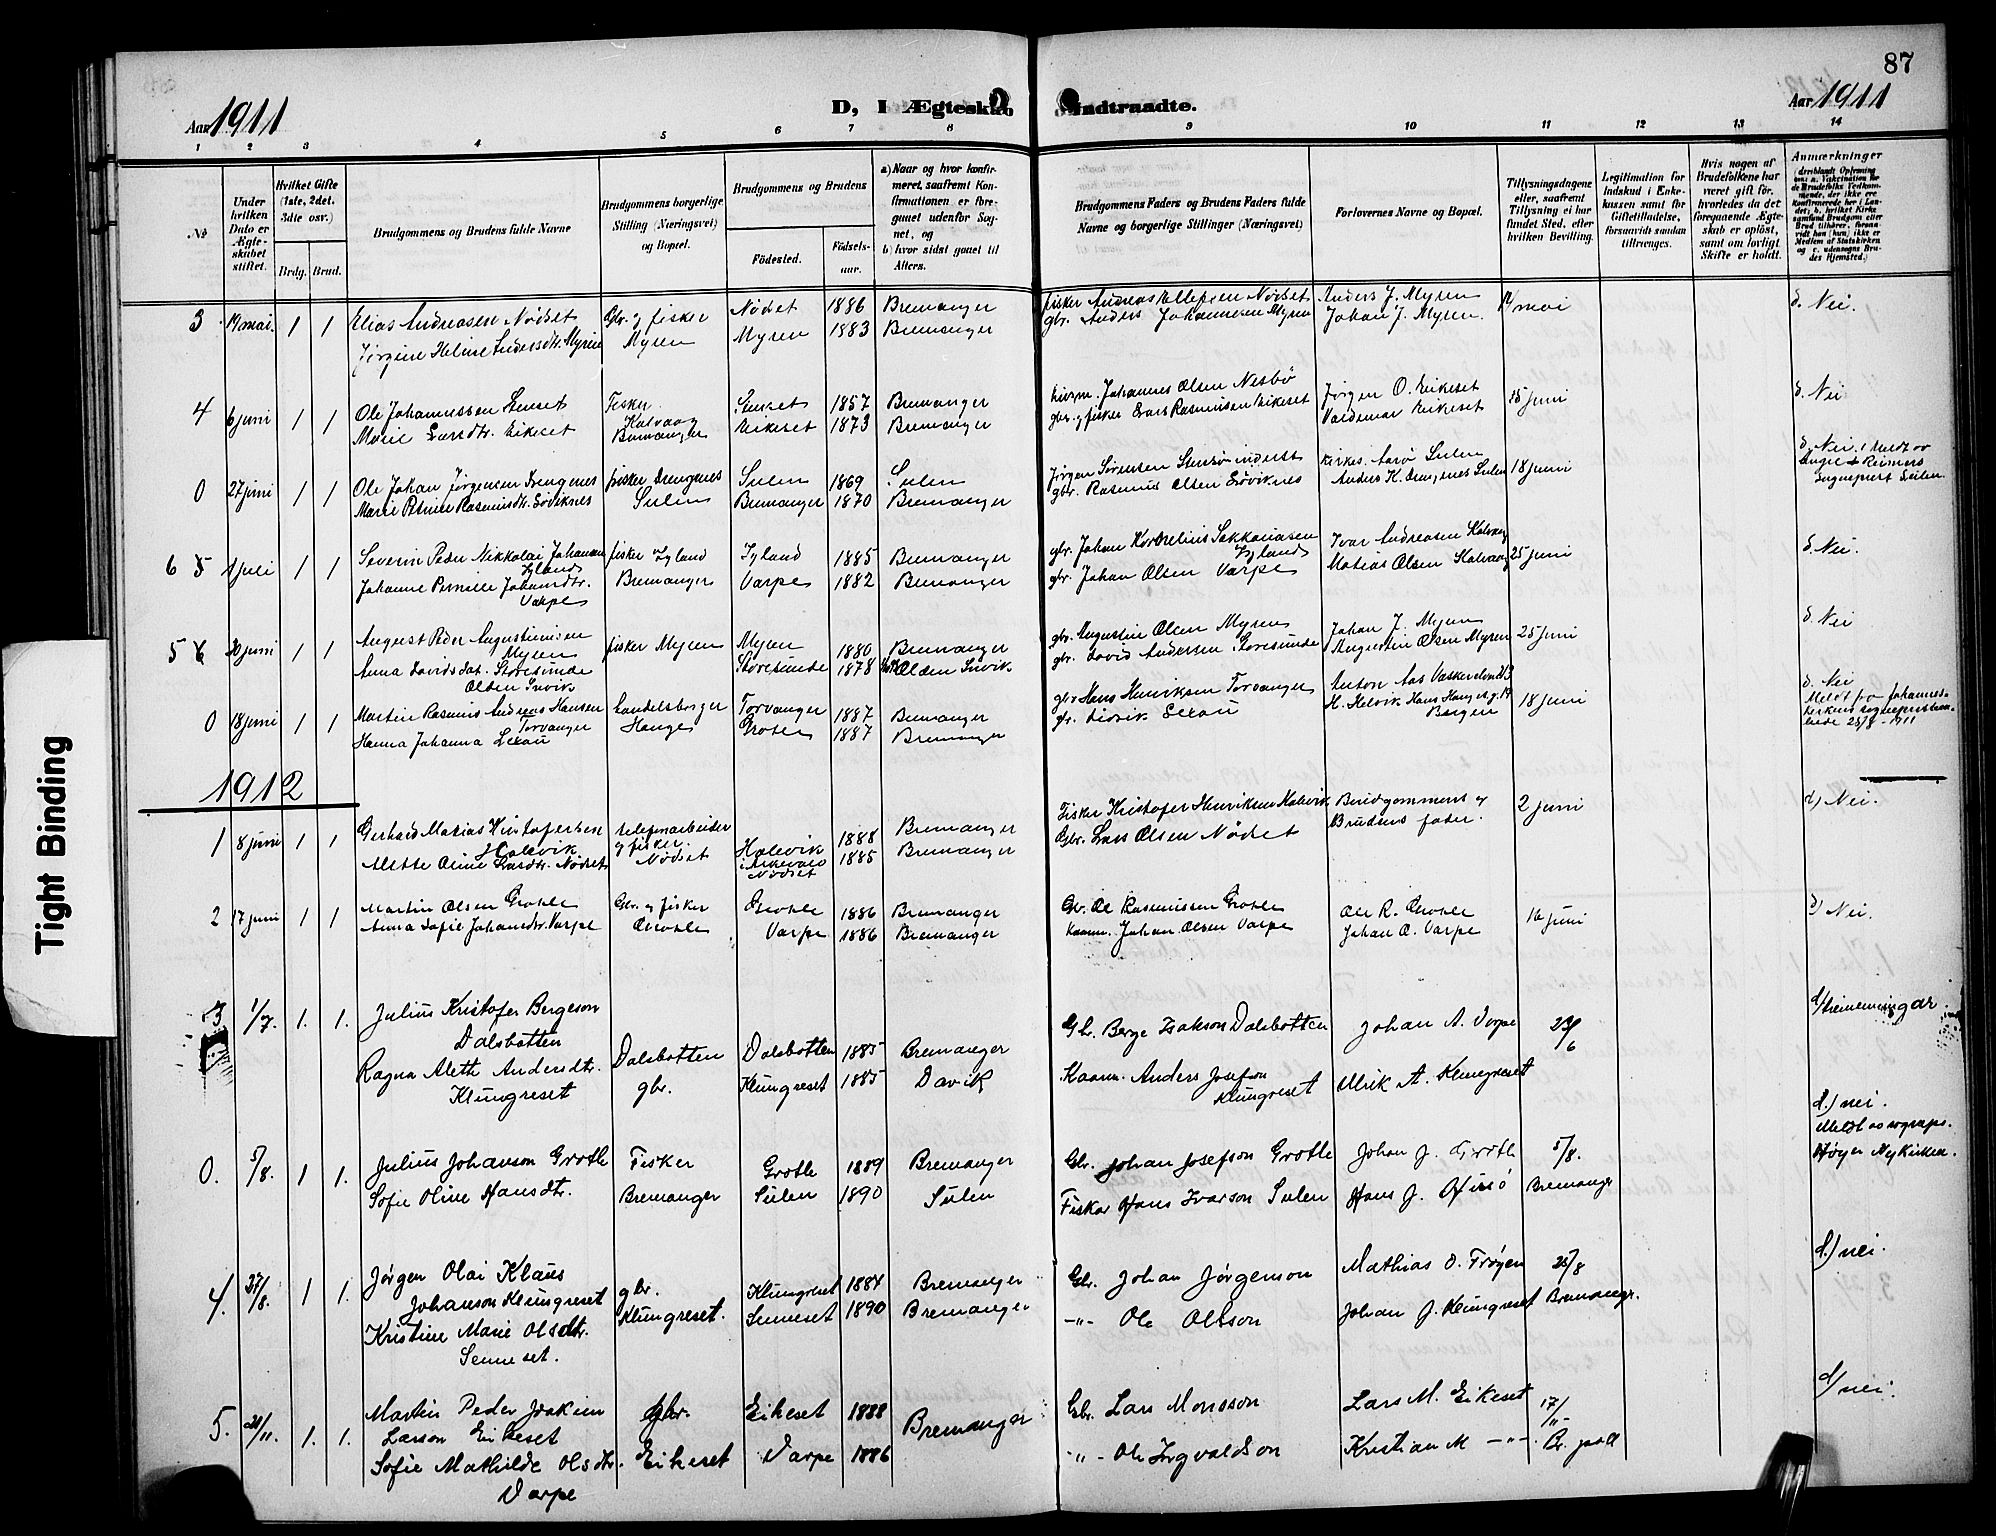 87
Aar 1911
D, I Ægteska
Indtraadte.
Aar 1911
1 2 3 4 5 6 7 8 9 10 11 12 13 14
No
Under hvilken Dato er Ægteskabet stiftet.
Hvilket Gifte (1ste, 2det, 3die osv.)
Brdg. Brud.
Brudgommens og Brudens fulde Navne
Brudgommens borgerlige Stilling (Næringsvei) og Bopæl.
Brudgommens og Brudens
Fødested.
Fødselsaar.
a) Naar og hvor konfirmeret, saafremt Konfirmationen er foregaaet udenfor Sognet, og
b) hvor sidst gaaet til Alters.
Brudgommens Faders og Brudens Faders fulde Navne og borgerlige Stillinger (Næringsvei)
Forlovernes Navne og Bopæl.
Tillysningsdagene eller, saafremt Tillysning ei har fundet Sted, efter hvilken Bevilling.
Legitimation for Indskud i Enkekassen samt for Giftetilladelse, forsaavidt saadan tiltrænges.
Hvis nogen af Brudefolkene har været gift før, hvorledes da det foregaaende Ægteskab er opløst, samt om lovligt Skifte er holdt.
Anmærkninger
3 19 mai. 1 1 Elias Andreasen Nødset Gbr. og fisker Nødset 1886 Bremanger fisker Andreas Ellefsen Nødset Anders J. Myren mai d. Nei.
Jørgine Heline Andersdtr. Myren Myren Myren 1883 Bremanger gbr. Anders Johannesen Myren Johan J. Myren.
4 6 juni 1 1 Ole Johannessen Senset Fisker 1857 Bremanger Johannes Olsen Nesbø Jørgen O. Eikeset 15 juni d. Nei
Marie Larsdtr. Eikeset Kalvaag Bremanger Eikeset 1873 Bremanger gbr. og fisker Lars Rasmusen Eikeset Valdemar Eikeset
0 27 juni 1 1 Ole Johan Jørgensen Drengenes fisker Drengenes Sulen 1869 Sulen Jørgen Sørensen Aarø Sulen 18 juni d. Nei. Meldt
Marie Petrine Rasmusdtr. Løviknes Sulen Bremanger 1870 Bremanger gbr. Rasmus Olsen Løviknes Anders K. Drengenes Sulen Sulen.
6 5 1 juli 1 1 Severin Peder Nikkolai Johansen fisker Iglend Igland 1885 Bremanger gbr. Johan Kornelius Sakkariasen Igland Ivar Andreasen Kalvaag 25 juni d. Nei.
Igland
Johanne Pernelle Johansdtr. Varpe Bremanger Varpe 1882 Bremanger gbr. Johan Olsen Varpe Matias Olsen Kalvaag
5 6 30 juni 1 1 August Peder Augustinusen Myren fisker Myren Myren 1880 Bremanger gbr. Augustin Olsen Myren Johan J. Myren 25 juni d. Nei
Anna Davidsdat. Storesunde Storesunde 1878 Olden Invik gbr. David Andersen Storesunde Augustin Olsen Myren
Olden Invik
0 18 juni 1 1 Martin Rasmus Andreas Hansen Torvanger Handelsborger Torvanger 1887 Bremanger gbr Hans Henriksen Torvanger Anton Aas 18 juni d. Nei
Hanna Johanna Lexau Hauge Grotle 1887 Bremanger gbr. Lexau H. Helvik Hans Hauges g. 19 Bergen Meldt fra Johanneskirkens
1912
1 8 juni 1 1 Gerhard Matias Kristofersen Halevik telefonarbeider og fisker. Halevik 1888 Bremanger Fisker Kristofer Henriksen Halevik Brudgommens og 2 juni d) Nei.
Mette Oline Larsdtr. Nødset Nødset Nødset 1885 Bremanger Gbr. Lars Olsen Nødset Brudens fader.
2 17 juni 1 1 Martin Olsen Grotle Gbr. og fisker Grotle 1886 Bremanger Gbr. Ole Rasmussen Grotle Ole R. Grotle 16 juni d) Nei.
Anna Sofie Johansdtr. Varpe Grotle Varpe 1886 Bremanger Kaarm. Johan Olsen Varpe Johan O. Varpe
3 1/7. 1. 1. Julius Kristofer Bergeson Dalsbotten Dalsbotten Dalsbotten 1885 Bremanger Gbr. Berge Isakson Dalsbotten Johan A. Varpe 23/6
Ragna Aleth Andersdtr. Klungreset gbr. Klungreset 1885 Davik Kaarm. Anders Josefson Klungreset Ulrik A. Klungreset
0. 5/8. 1 1. Julius Johanson Grotle Fisker Grotle 1889 Bremanger Gbr. Johan Josefson Grotle Johan J. Grotle 5/8. d.) nei.
Sofie Oline Hansdtr. Bremanger Sulen 1890 Sulen Fiskar Hans Ivarson Sulen Hans J. Bremanger Nykirken.
4. 27/8. 1 1. Jørgen Olai Klaus Johanson Klungreset gbr. Klungreset 1884 Bremanger Gbr. Johan Jørgenson Mathias O. Frøyen 25/8 d.) nei.
Kristine Marie Olsdtr. Senneset. Klungreset. Senneset 1890 Bremanger -"- Ole Olsson Johan J. Klungreset Bremanger.
5. 1. 1. Martin Peder Joakim Larson Eikeset Gbr. Eikeset 1888 Bremanger Gbr. Lars Monsson Lars M. Eikeset 17/11 d/ nei.
Sofie Mathilde Olsdtr. Varpe Eikeset Varpe 1886 -"- Ole Ingvaldson Kristian M -"-
Tight Binding